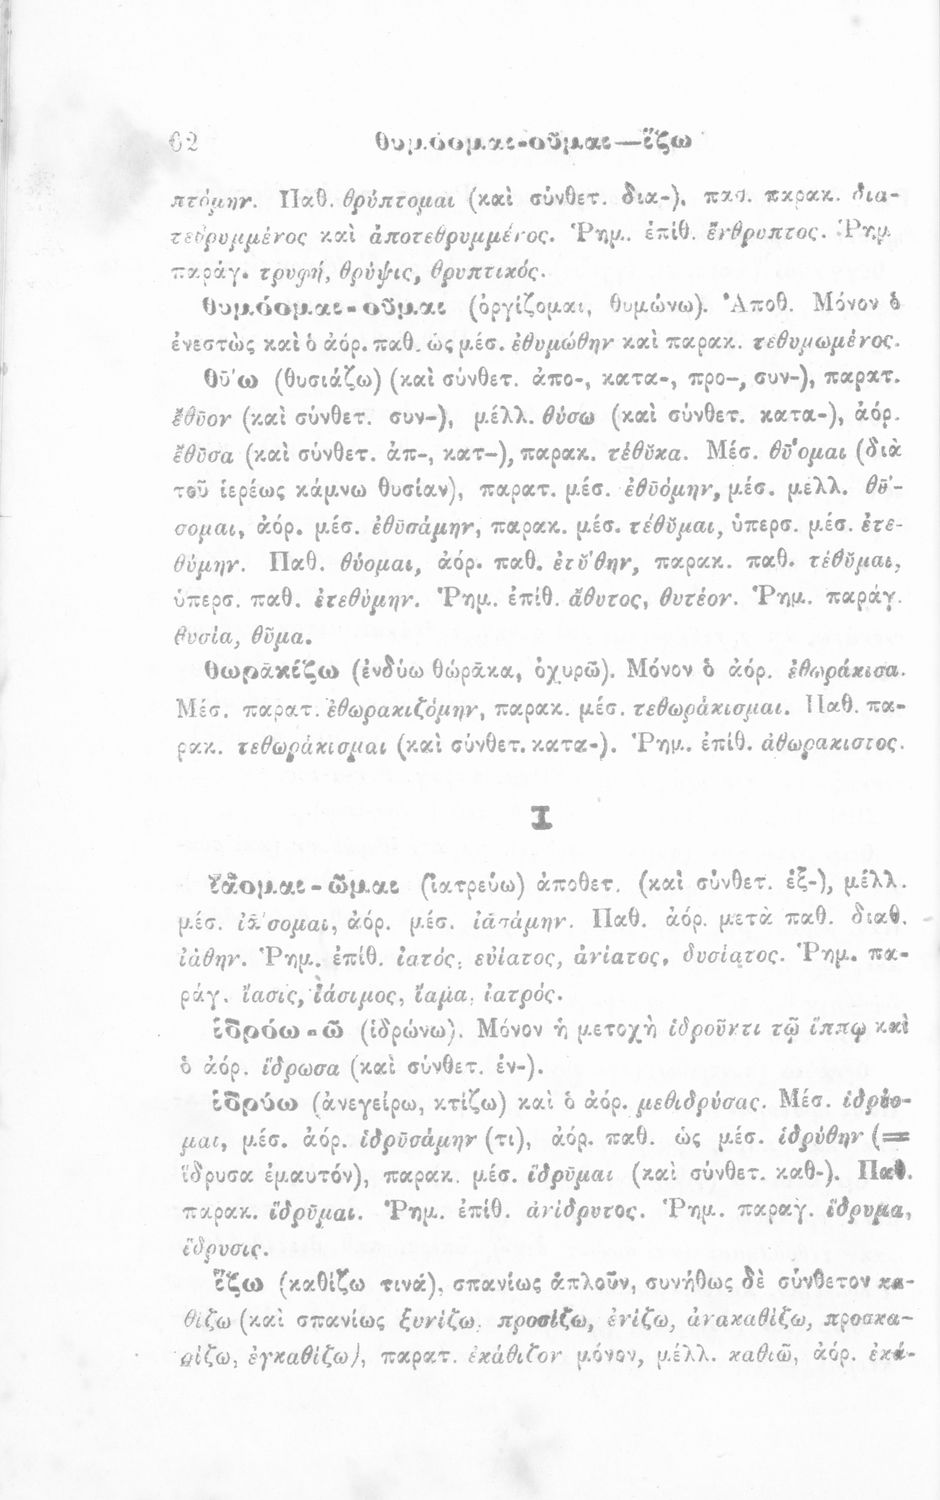 62 θυμόομαι-οῦμαι—ἵζω
πτόμην. Παθ. θρύπτομαι (καὶ σύνθετ. δια-), παθ. παρακ. δια-
τεθρυμμένος καὶ ἀποτεθρυμμένος. Ῥημ. ἐπίθ. ἔνθρυπτος. Ῥημ.
παράγ. τρυφή, θρύψις, θρυπτικός.
θυμόομαι-οῦμαι (ὀργίζομαι, θυμώνω). Ἀποθ. Μόνον ὁ
ἐνεστὼς καὶ ὁ ἀόρ. παθ. ὡς μέσ. ἐθυμώθην καὶ παρακ. τεθυμωμένος.
θῡ́ω (θυσιάζω) (καὶ σύνθετ. ἀπο-, κατα-, προ-, συν-), παρατ.
ἔθῡον (καὶ σύνθετ. συν-), μέλλ. θύσω (καὶ σύνθετ. κατα-), ἀόρ.
ἔθῡσα (καὶ σύνθετ. ἀπ-, κατ-), παρακ. τέθῠκα. Μέσ. θῡ́ομαι (διὰ
τοῦ ἱερέως κάμνω θυσίαν), παρατ. μέσ. ἐθῡόμην, μέσ. μελλ. θῡ́-
σομαι, ἀόρ. μέσ. ἐθῡσάμην, παρακ. μέσ. τέθῠμαι, ὑπερσ. μέσ. ἐτε-
θύμην. Παθ. θύομαι, ἀόρ. παθ. ἐτῠ́θην, παρακ. παθ. τέθῠμαι,
ὑπερσ. παθ. ἐτεθύμην. Ῥημ. ἐπίθ. ἄθυτος, θυτέον. Ῥημ. παράγ.
θυσία, θῦμα.
θωρᾱκίζω (ἐνδύω θώρᾱκα, ὀχυρῶ). Μόνον ὁ ἀόρ. ἐθωράκισα.
Μέσ. παρατ. ἐθωρακιζόμην, παρακ. μέσ. τεθωράκισμαι. Παθ. πα-
ρακ. τεθωράκισμαι (καὶ σύνθετ. κατα-). Ῥημ. ἐπίθ. ἀθωρακιστος.
Ι
ἰάομαι-ῶμαι (ἰατρεύω) ἀποθετ. (καὶ σύνθετ. ἐξ-), μέλλ.
μέσ. ἰᾱ́σομαι, ἀόρ. μέσ. ἰᾱσάμην. Παθ. ἀόρ. μετὰ παθ. διαθ.
ἰάθην. Ῥημ. ἐπίθ. ἰατός, εὐίατος, ἀνίατος, δυσίατος. Ῥημ. πα-
ράγ. ἴασις, ἰάσιμος, ἴαμα, ἰατρός.
ἱδρόω-ῶ (ἱδρώνω). Μόνον ἡ μετοχὴ ἱδροῦντι τῷ ἵππῳ καὶ
ὁ ἀόρ. ἵδρωσα (καὶ σύνθετ. ἐν-).
ἱδρύω (ἀνεγείρω, κτίζω) καὶ ὁ ἀόρ. μεθιδρύσας. Μέσ. ἱδρύο-
μαι, μέσ. ἀόρ. ἱδρῡσάμην (τι), ἀόρ. παθ. ὡς μέσ. ἱδρύθην (=
ἵδρυσα ἐμαυτόν), παρακ. μέσ. ἵδρῡμαι (καὶ σύνθετ. καθ-). Παθ.
παρακ. ἵδρῡμαι. Ῥημ. ἐπίθ. ἀνίδρυτος. Ῥημ. παραγ. ἵδρυμα,
ἵδρυσις.
ἵζω (καθίζω τινά), σπανίως ἁπλοῦν, συνήθως δὲ σύνθετον κα-
θίζω (καὶ σπανίως ξυνίζω, προσίζω, ἐνίζω, ἀνακαθίζω, προσκα-
θίζω, ἐγκαθίζω), παρατ. ἐκάθιζον μόνον, μέλλ. καθιῶ, ἀόρ. ἐκά-